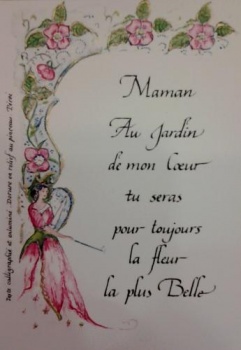 Maman
Au Jardin
de mon Cœur
tu seras
pour toujours
la fleur
la plus Belle
calligraphié et enluminé. Dorure en relief au pinceau.